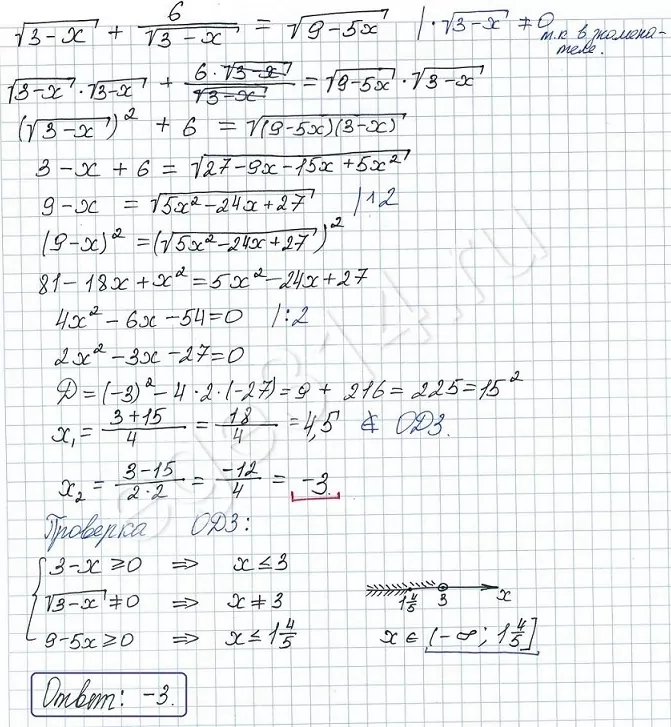 √(3-x) + 6/√(3-x) = √(9-5x) | · √(3-x) ≠ 0 т.к. в знаменателе.
√(3-x) · √(3-x) + (6·√(3-x))/√(3-x) = √(9-5x) · √(3-x)
(√(3-x))² + 6 = √((9-5x)(3-x))
3-x+6 = √(27-9x-15x+5x²)
9-x = √(5x²-24x+27) |^2
(9-x)² = (√(5x²-24x+27))²
81-18x+x² = 5x²-24x+27
4x²-6x-54=0 |:2
2x²-3x-27=0
Д = (-3)²-4·2·(-27) = 9+216 = 225 = 15²
x₁ = (3+15)/4 = 18/4 = 4,5 ∉ ОДЗ.
x₂ = (3-15)/(2·2) = -12/4 = -3.
Проверка ОДЗ:
3-x ≥ 0 ⇒ x ≤ 3
√(3-x) ≠ 0 ⇒ x ≠ 3
9-5x ≥ 0 ⇒ x ≤ 1 4/5
1 4/5 3 x
x ∈ (-∞; 1 4/5]
Ответ: -3.